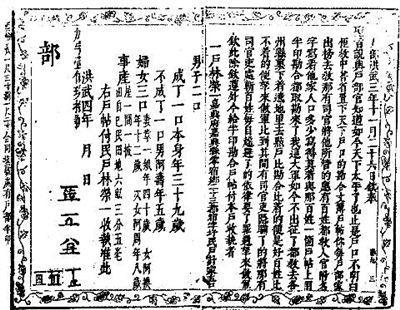 洪武三年十一月二十六日欽奉
聖旨說與戶部官知道如今天下太平了也止是戶口不明白
教中書省置天下戶口的勘合文簿戶帖你每戶部家
出榜去教那有司官將他所管的應有百姓都教入官附名
字寫着他家人口多少寫得真着與那百姓一箇戶帖上用
半印勘合都取勘來了我這大軍如今不出征了都教去各
州縣裏下着遶地里去點戶比勘合比着的便是好百姓比
不着的便拿來做軍比到其間有司官吏隱瞞了的將那有
司官吏處斬百姓每自趓避了的依律要了罪過拿來做軍
欽此除欽遵外今給半印勘合戶帖付本戶收執者
一戶林榮一嘉興府嘉興縣零宿鄉二十三都宿字圩民戶計家五口
男子二口
成丁一口本身年三十九歲
不成丁一口男阿壽年五歲
婦女三口妻章一娘年四十歲 女阿換
次女阿周年八歲
事產
屋一間一披
田自己民田地六畝三分五毫
右戶帖付民戶林榮一收執准此
洪武四年 月 日
部